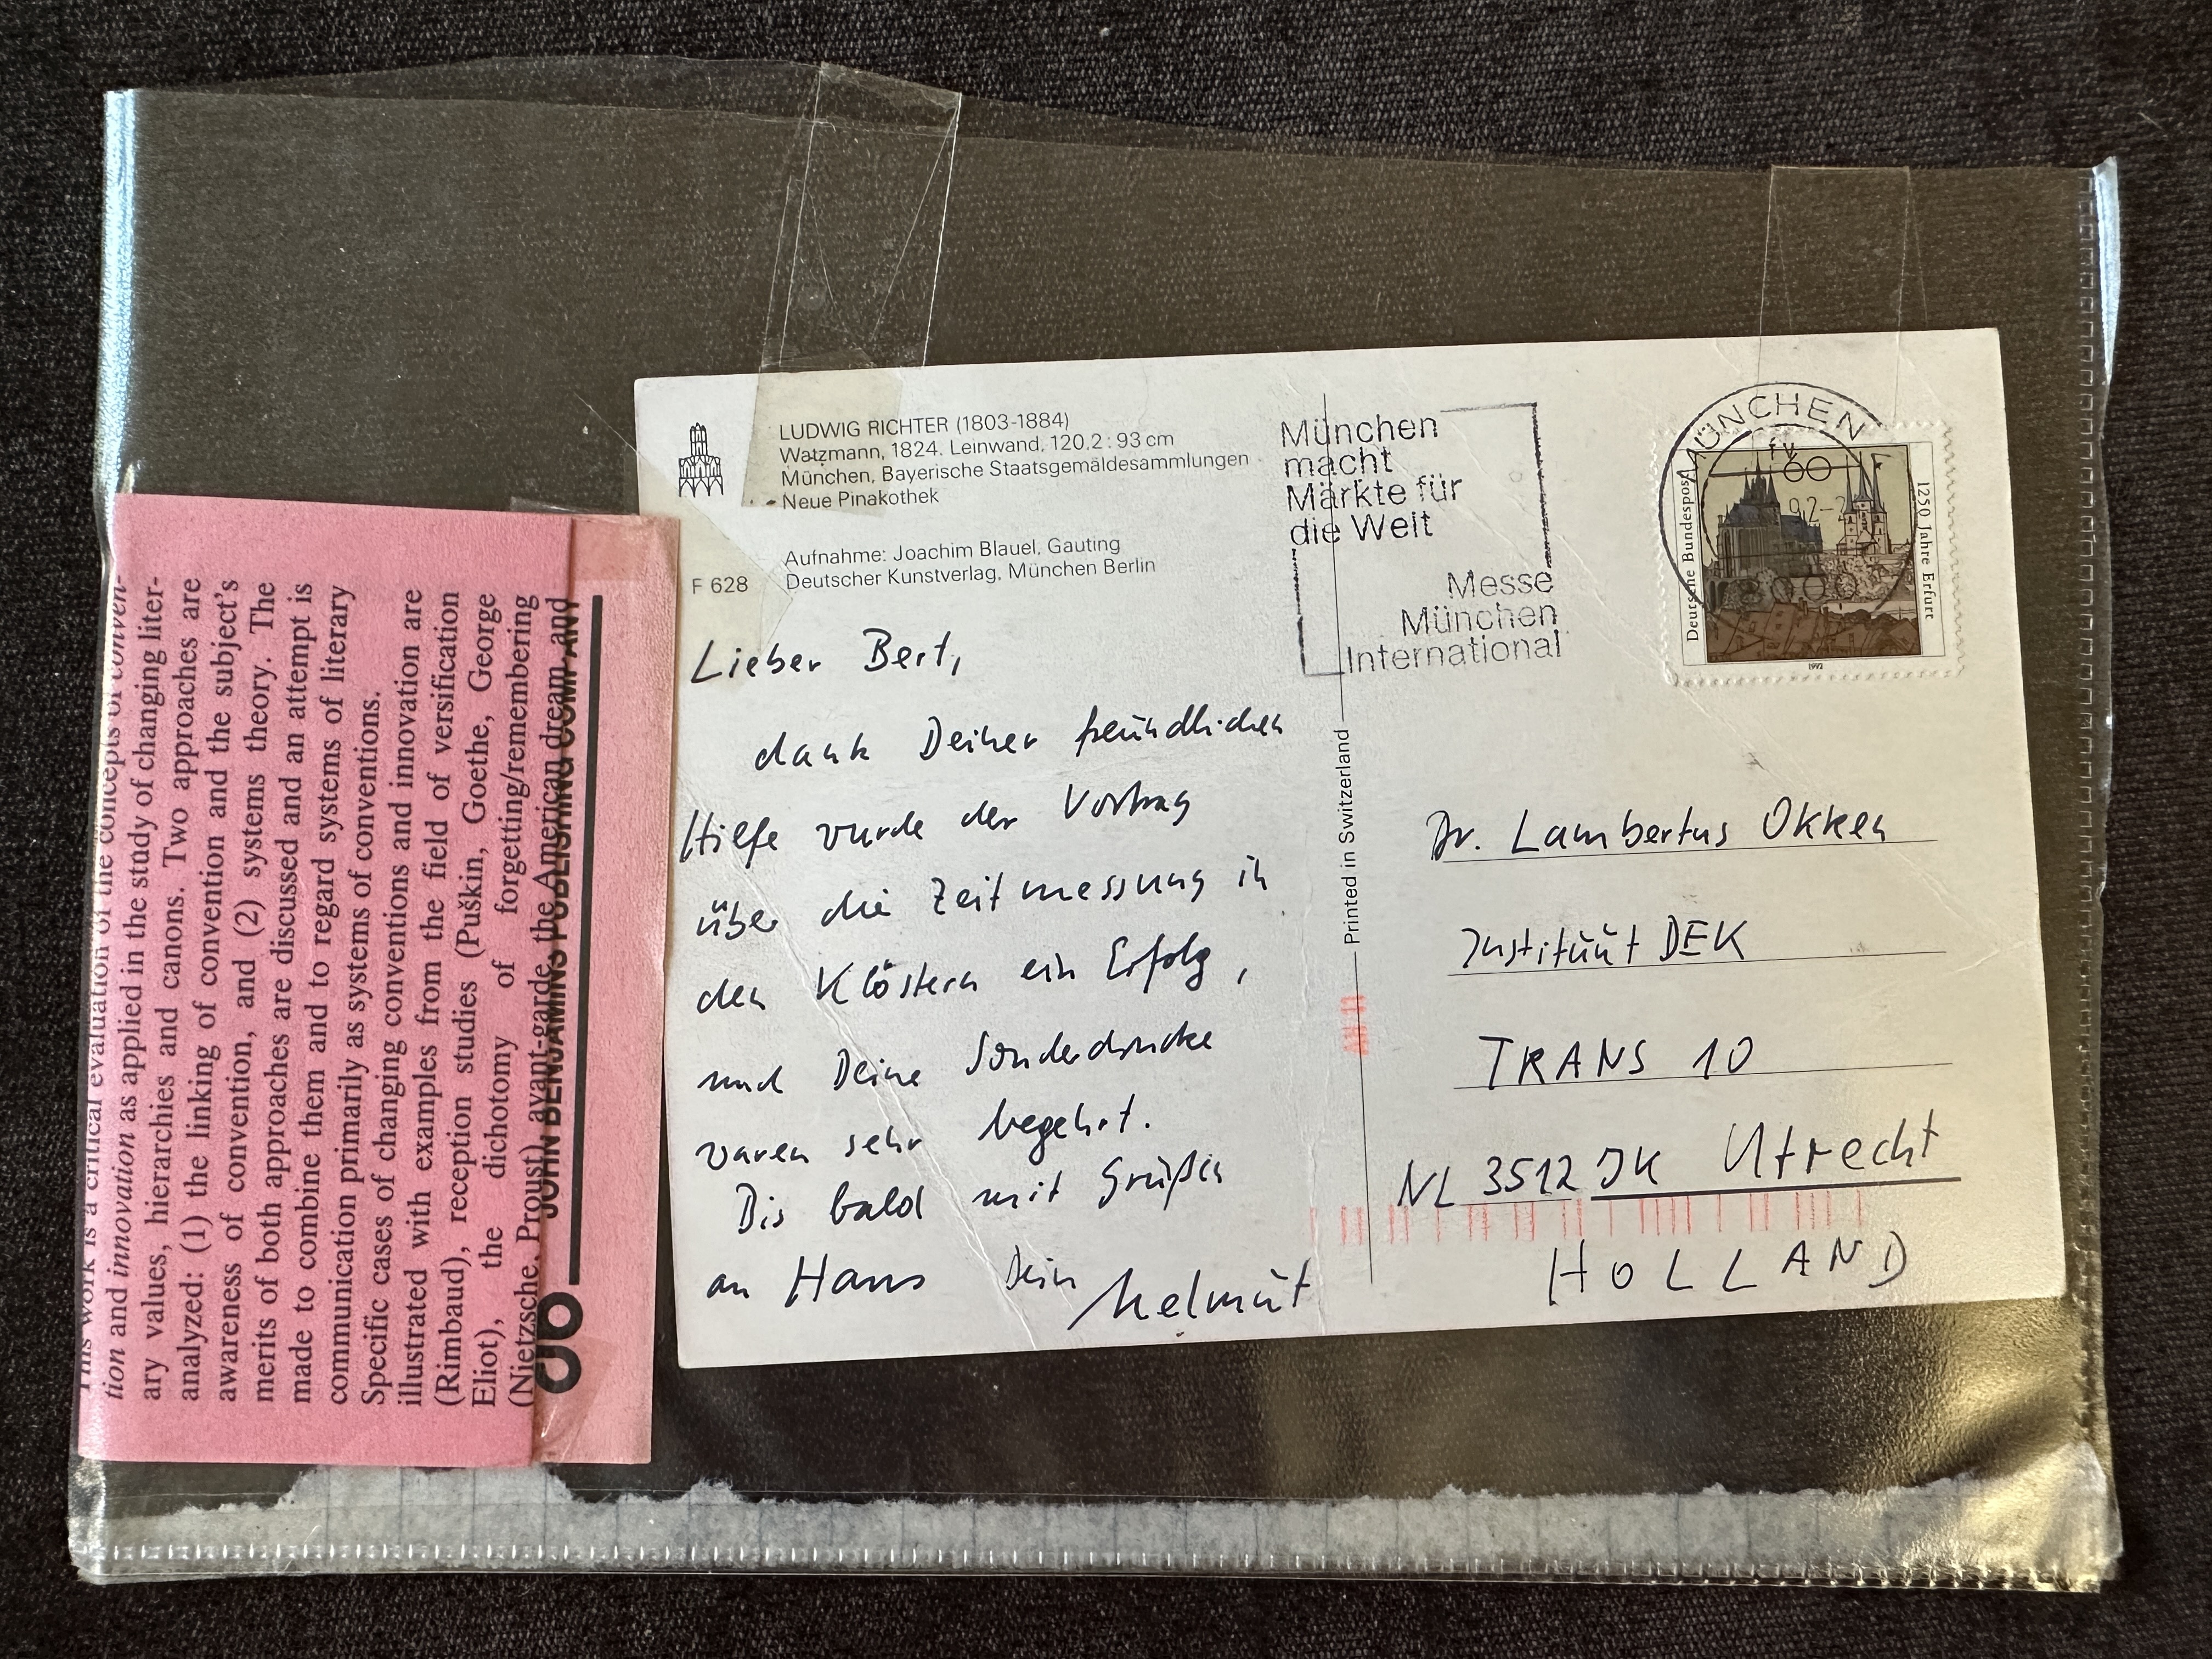 LUDWIG RICHTER (1803-1884)
Watzmann, 1824. Leinwand, 120,2 : 93 cm
München, Bayerische Staatsgemäldesammlungen
Neue Pinakothek
Aufnahme: Joachim Blauel, Gauting
Deutscher Kunstverlag, München Berlin
F 628
Lieber Bert,
dank Deiner freundlichen
Hilfe wurde der Vortrag
über die Zeitmessung in
den Klöstern ein Erfolg,
und Deine Sonderdrucke
waren sehr begehrt.
Bis bald mit Grüßen
an Hans Dein Helmut
Printed in Switzerland
München
macht
Märkte für
die Welt
Messe
München
International
MÜNCHEN
fv
60
Deutsche Bundespost
1250 Jahre Erfurt
1992
Dr. Lambertus Okken
Instituut DEK
TRANS 10
NL 3512 JK Utrecht
HOLLAND
This work is a critical evaluation of the concepts of conven-
tion and innovation as applied in the study of changing liter-
ary values, hierarchies and canons. Two approaches are
analyzed: (1) the linking of convention and the subject's
awareness of convention, and (2) systems theory. The
merits of both approaches are discussed and an attempt is
made to combine them and to regard systems of literary
communication primarily as systems of conventions.
Specific cases of changing conventions and innovation are
illustrated with examples from the field of versification
(Rimbaud), reception studies (Puškin, Goethe, George
Eliot), the dichotomy of forgetting/remembering
(Nietzsche, Proust), avant-garde, the American dream and
JOHN BENJAMINS PUBLISHING COMPANY